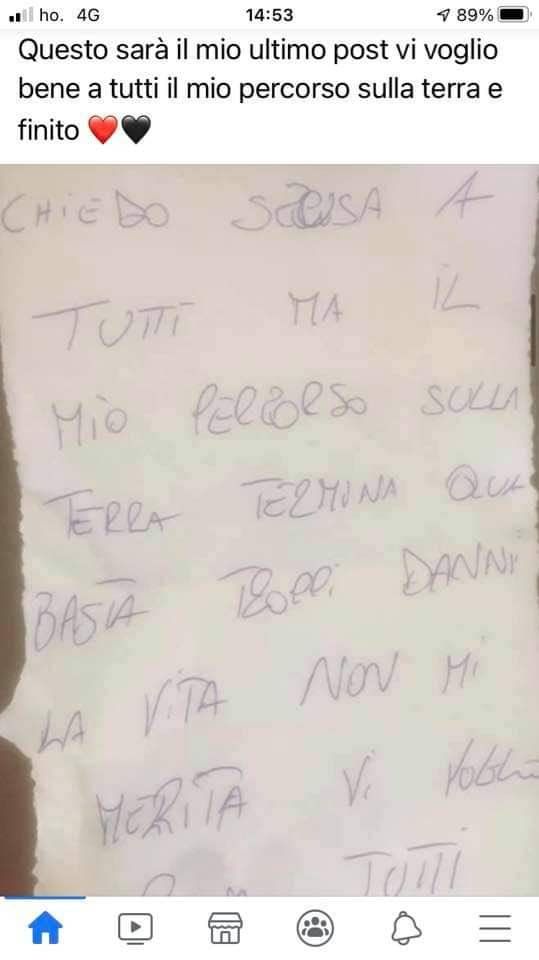 ho. 4G 14:53 89%
Questo sarà il mio ultimo post vi voglio
bene a tutti il mio percorso sulla terra e
finito ❤️🖤
CHiEDO SCUSA A
TUTTi MA iL
Mio PERCORSO SULLA
TERRA TERMINA QUA
BASTA TROPPi DANNi
LA ViTA NON Mi
MERiTA Vi VOGLio
TUTTi